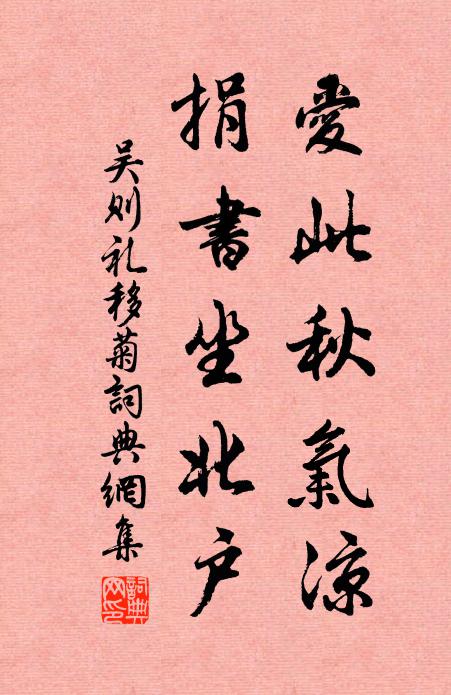 愛此秋氣涼
捐書坐北户
吴则礼移菊詞典網集
詞典网印